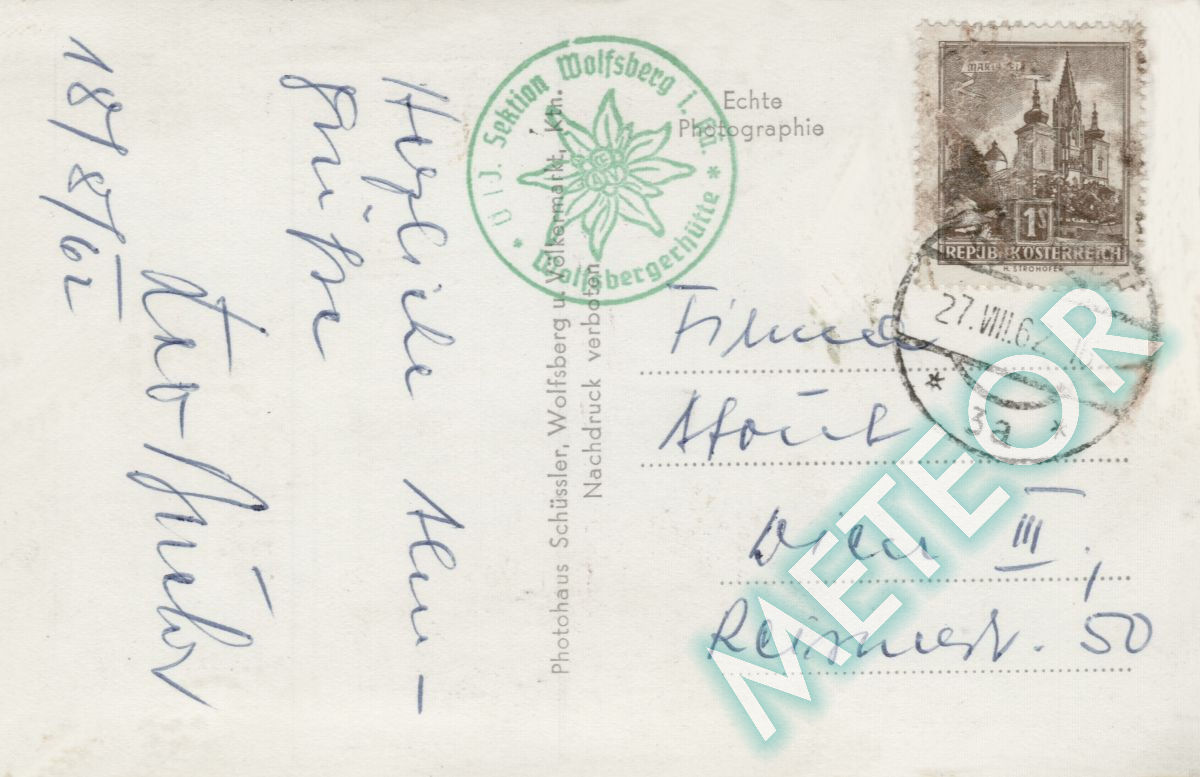 18/8/62
Herzliche Alm-
Grüße
* DAV. Sektion Wolfsberg i. Ka. *
Wolfsbergerhütte
Echte
Photographie
Photohaus Schüssler, Wolfsberg u. Völkermarkt, Ktn.
Nachdruck verboten
MARIAZELL
1S
REPUBLIK ÖSTERREICH
H. STROHOFER
27.VIII.62
* 3a *
Firma
Wien III,
Reisnerst. 50
METEOR